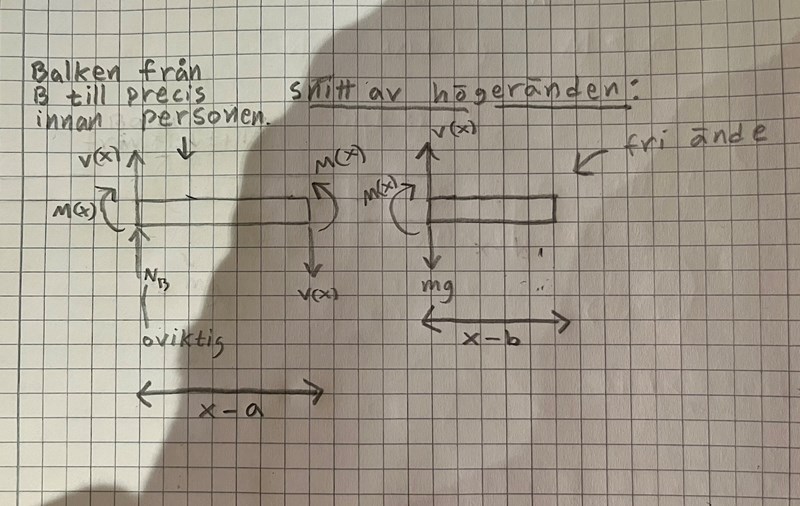 Balken från
B till precis
innan personen.
snitt av högeränden:
fri ände
V(x)
M(x)
M(x)
V(x)
N_B
oviktig
x-a
V(x)
M(x)
mg
x-b